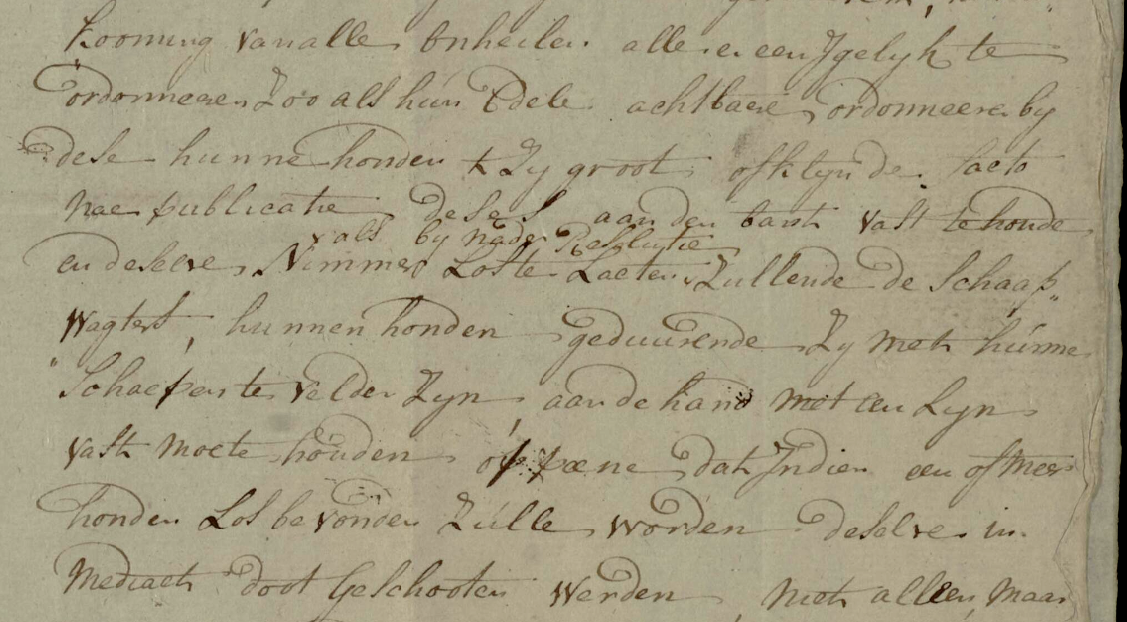 kooming van alle onheilen alle en een Jgelyk te
ordonneeren Zoo als hun Edele achtbaere ordonneeren by
dese hunne honden t Zy groot of klyn de facto
nae publicatie deses aan den bant vast te houde
als by nader Resolutie
en deselve Nimmer Loste Laeten, Zullende de Schaap„
Wagters, hunnen honden geduurende Zy met hunne
"Schaepen te velden Zyn, aan de hand met een Lyn
vast moete houden op poene dat Jndien een of meer
honden Los bevonden Zulle worden deselve in
mediaet doot geschooten werden, niet alleen maar